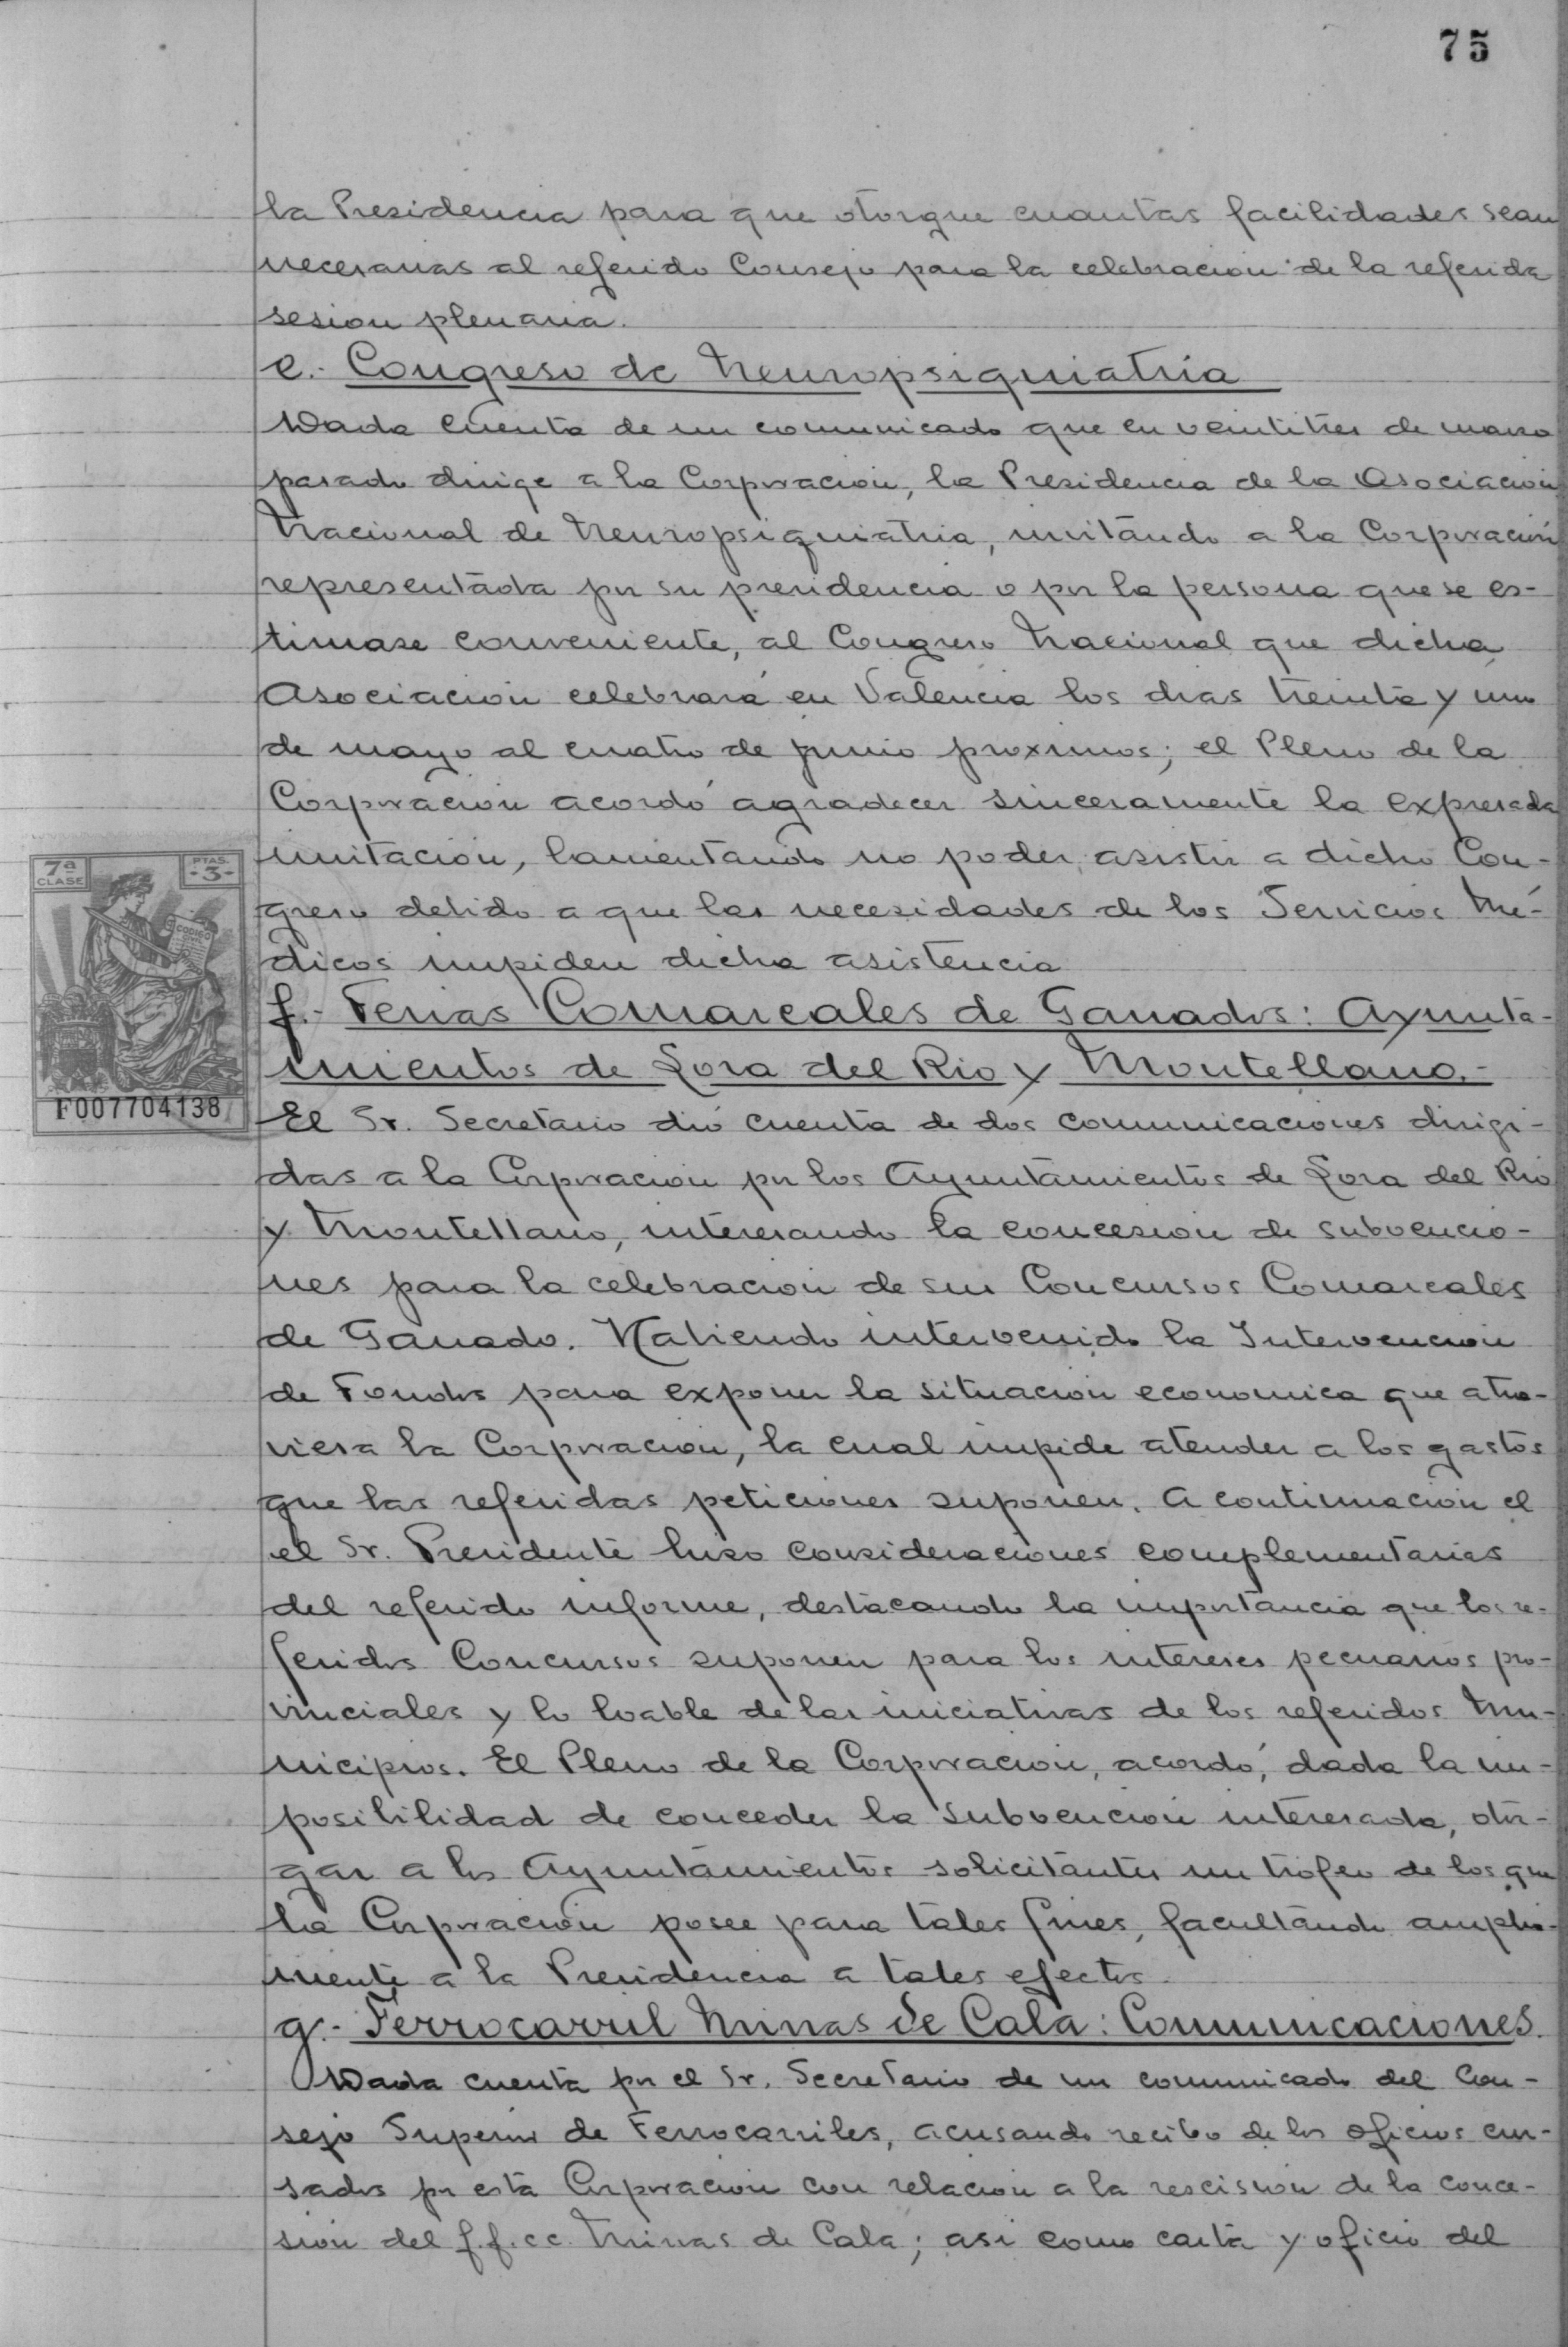 75
la Presidencia para que otorgue cuantas facilidades sean
necesarias al referido Consejo para la celebracion de la referida
sesion plenaria.
e.- Congreso de Neuropsiquiatria
Dada cuenta de un comunicado que en veintitres de marzo
pasado dirige a la Corporacion, la Presidencia de la Asociacion
Nacional de Neuropsiquiatria, invitando a la Corporación
representada por su presidencia o por la persona que se es-
timase conveniente, al Congreso Nacional que dicha
Asociacion celebrará en Valencia los dias treinta y uno
de mayo al cuatro de junio proximos; el Pleno de la
Corporacion acordó agradecer sinceramente la expresada
invitacion, lamentando no poder asistir a dicho Con-
greso debido a que las necesidades de los Servicios Mé-
dicos impiden dicha asistencia
f.- Ferias Comarcales de Ganados: Ayunta-
mientos de Lora del Rio y Montellano.-
El Sr. Secretario dió cuenta de dos comunicaciones dirigi-
das a la Corporacion por los Ayuntamientos de Lora del Rio
y Montellano, interesando la concesion de subvencio-
nes para la celebracion de sus Concursos Comarcales
de Ganado. Habiendo intervenido la Intervencion
de Fondos para exponer la situacion economica que atra-
viesa la Corporacion, la cual impide atender a los gastos
que las referidas peticiones suponen. A continuacion el
el Sr. Presidente hizo consideraciones complementarias
del referido informe, destacando la importancia que los re-
feridos Concursos suponen para los intereses pecuarios pro-
vinciales y lo loable de las iniciativas de los referidos Mu-
nicipios. El Pleno de la Corporacion, acordó, dada la im-
posibilidad de conceder la subvencion interesada, otor-
gar a los Ayuntamientos solicitantes un trofeo de los que
la Corporacion posee para tales fines, facultando amplia-
mente a la Presidencia a tales efectos.
g.- Ferrocarril Minas de Cala: Comunicaciones.
Dada cuenta por el Sr. Secretario de un comunicado del Con-
sejo Superior de Ferrocarriles, acusando recibo de los oficios cur-
sados por esta Corporacion con relacion a la rescision de la conce-
sion del f.f.c.c. Minas de Cala; asi como carta y oficio del
7ª
CLASE
PTAS.
-3-
CODIGO
F007704138